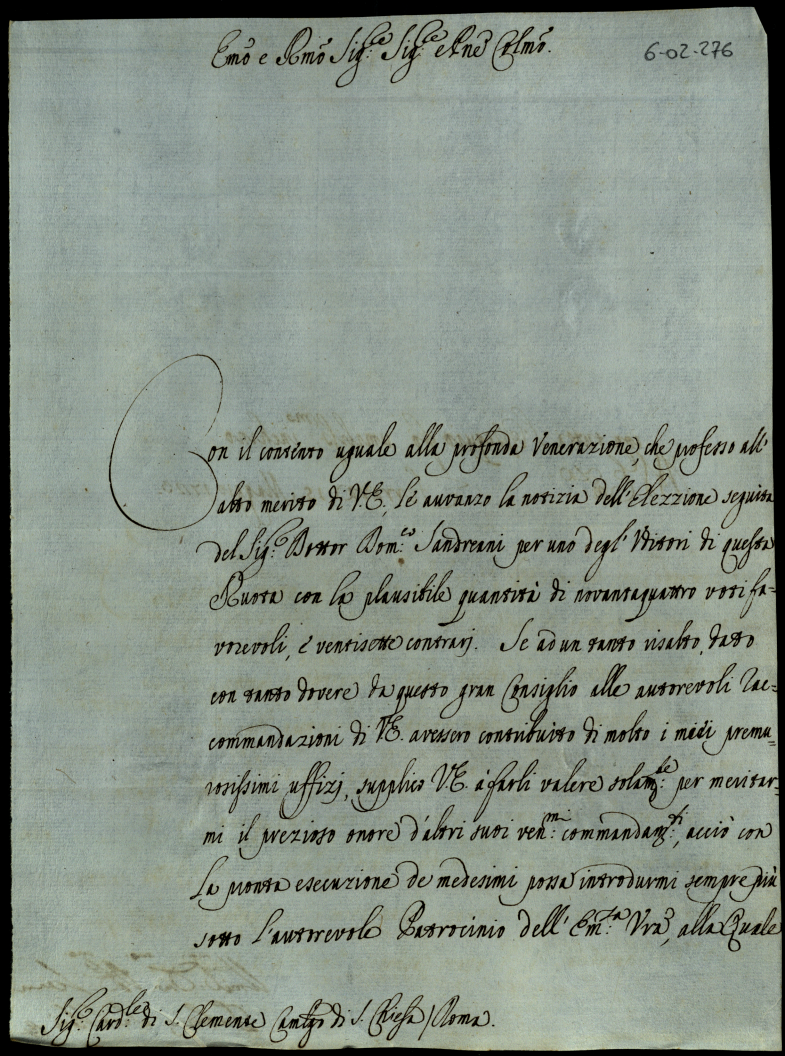 Emo e Rmo Sig.re Sig.re e Pne Colmo.
6-02-276
Con il contento uguale alla profonda Venerazione, che professo all'
alto merito di V.E. le auvanzo la notizia dell'Elezzione seguita
del Sig.r Dottor Dom.co Sandreani per uno degl'Uditori di questa
Ruota con la plausibile quantità di novantaquattro voti fa-
vorevoli, e ventisette contrarj. Se ad un tanto risalto, dato
con tanto dovere da questo gran Consiglio alle autorevoli Rac-
commandazioni di V.E. avessero contribuito di molto i miei premu-
rosissimi uffizj, supplico V.E. à farli valere solam.te per meritar-
mi il prezioso onore d'altri suoi ven.mi commandam.ti, acciò con
la pronta esecuzione de medesimi possa introdurmi sempre più
sotto l'autorevole Patrocinio dell'Em.za Vra, alla Quale
Sig.r Card.le di S. Clemente Camlgo di S. Chiesa / Roma.